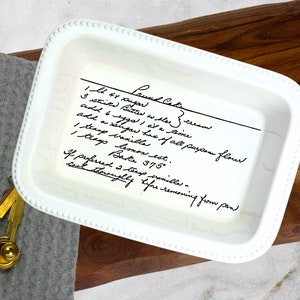 Pound Cake
1 lb 4x sugar
3 sticks butter or oleo } cream
add 6 eggs 1 at a time
add a sugar box of all purpose flour
1 teasp vanilla
1 teasp lemon ext.
Bake 375°
If preferred 2 teasp vanilla -
cool thoroughly before removing from pan